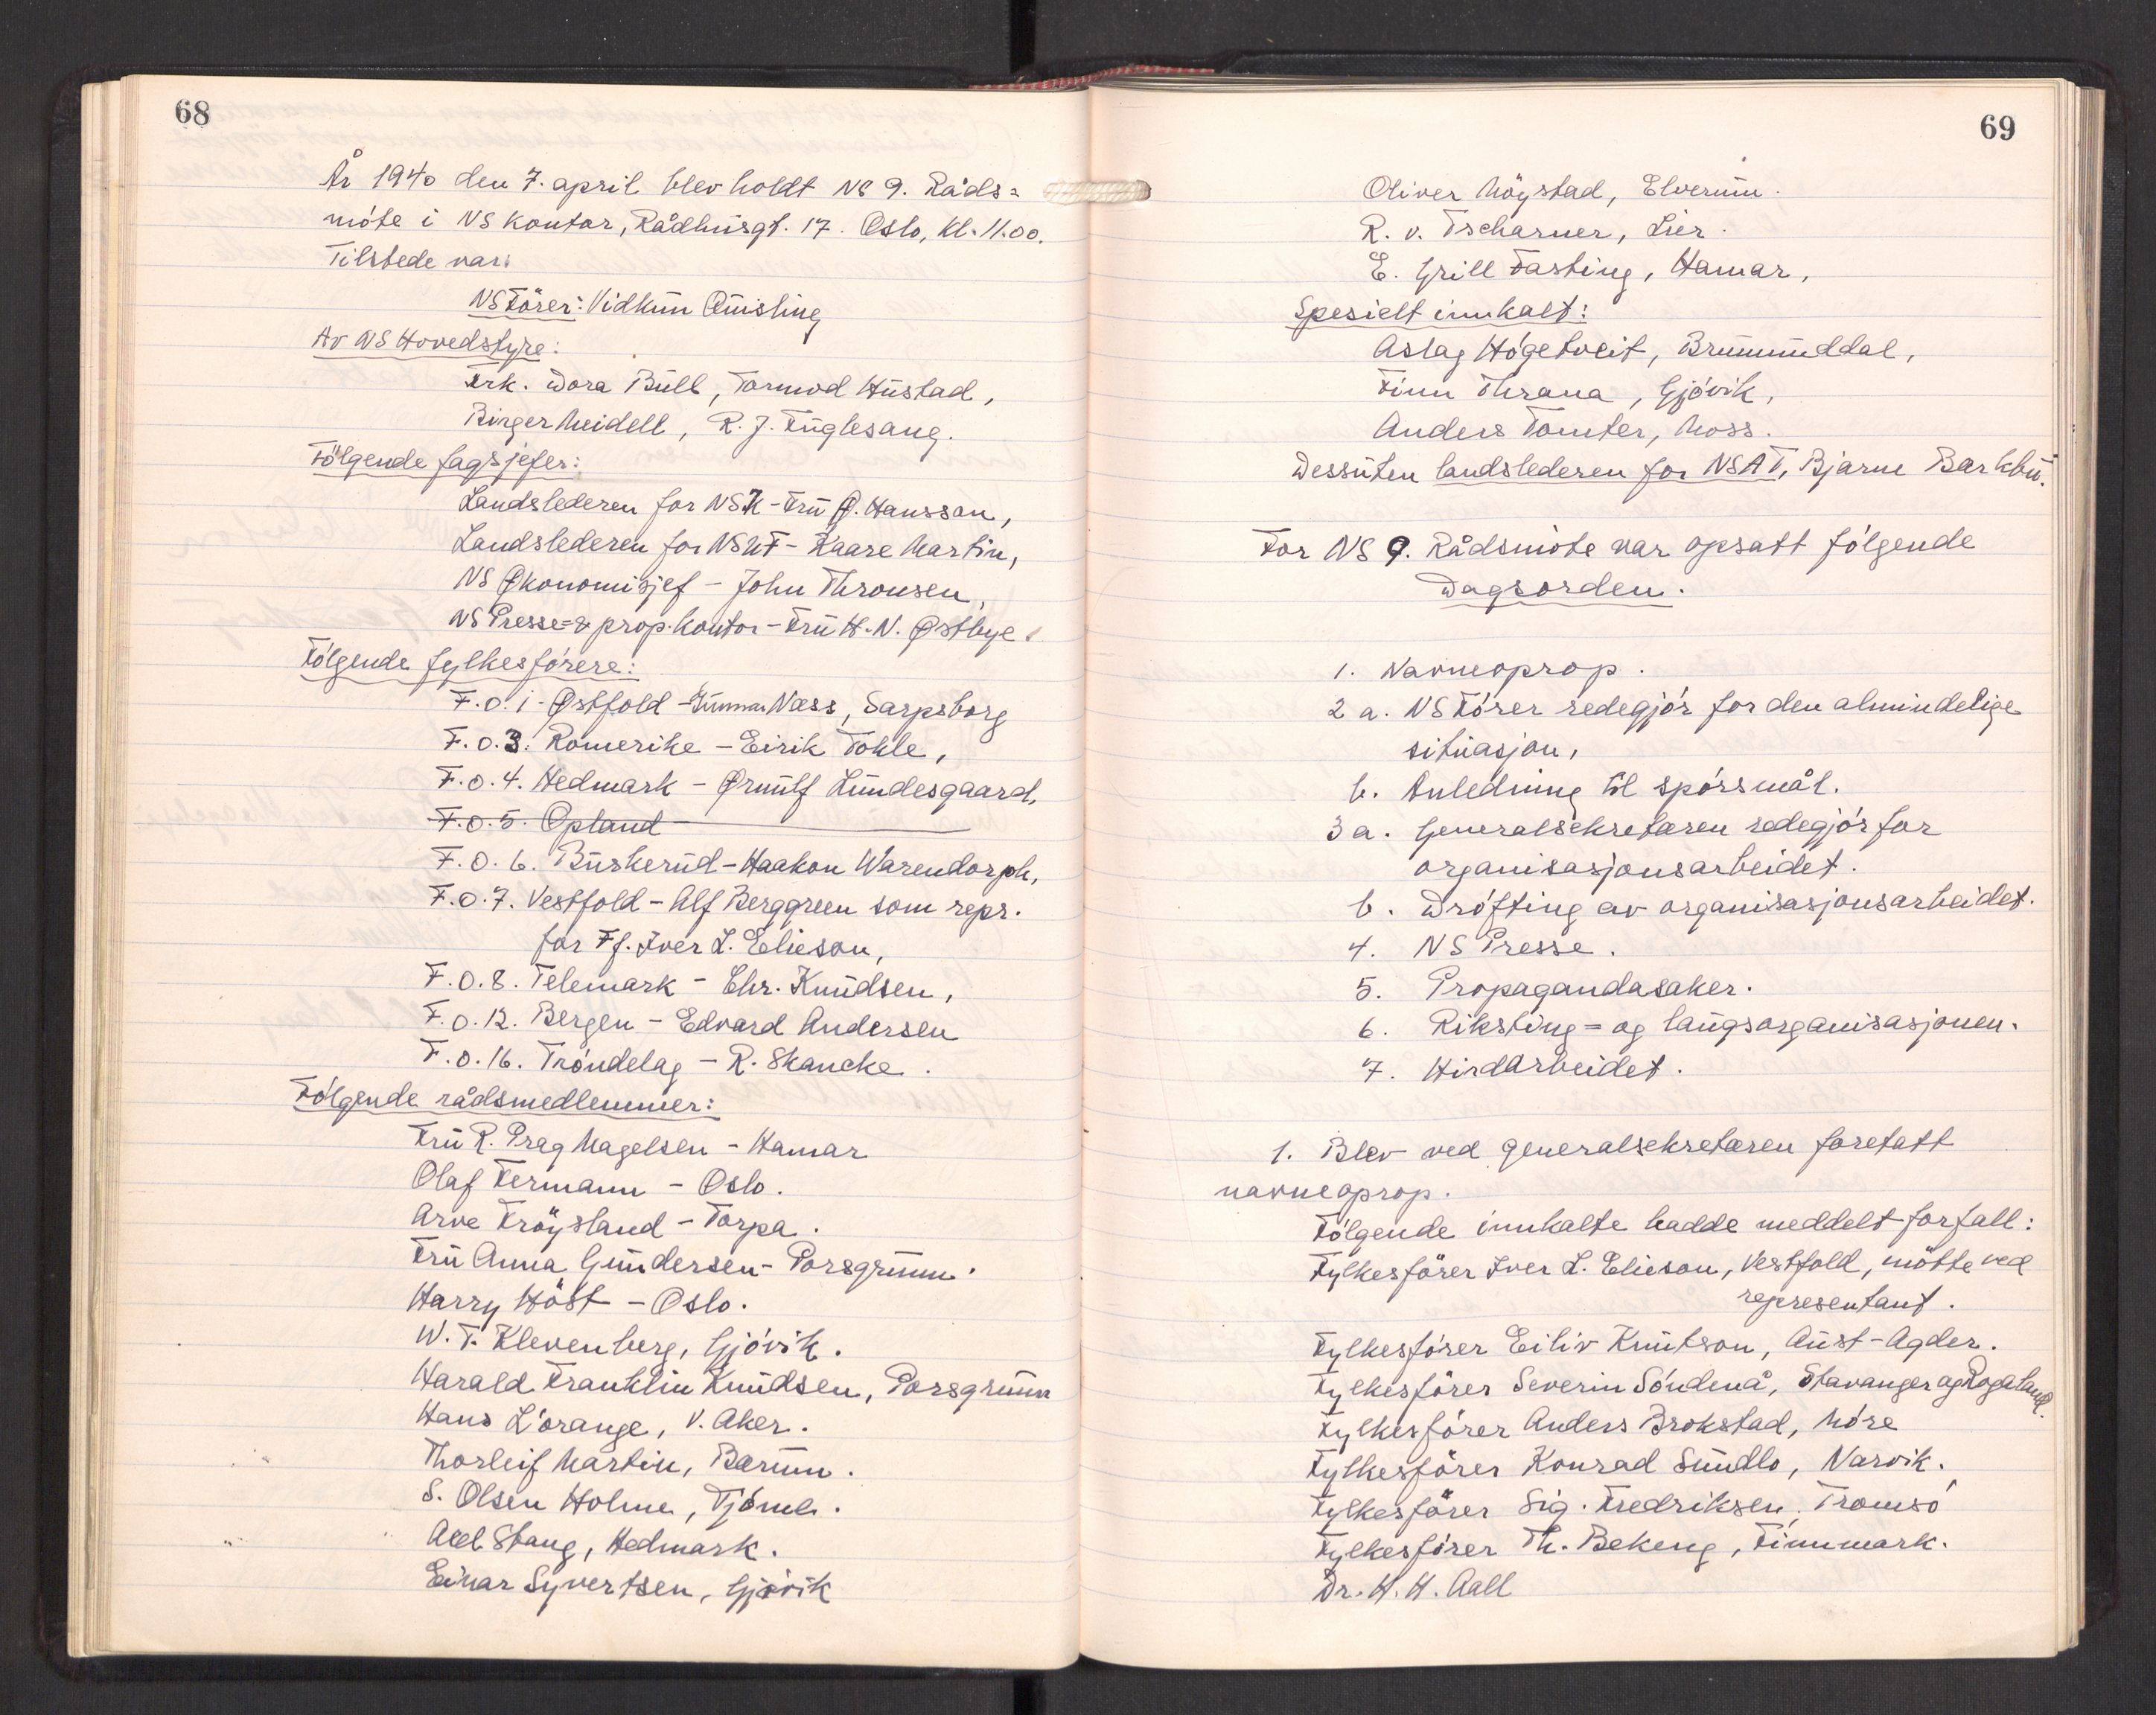 68
År 1940 den 7. april blev holdt NS 9. Råds=
möte i NS kontor, Rådhusgt. 17. Oslo, kl. 11.00.
Tilstede var:
NS Förer: Vidkun Quisling
Av NS Hovedstyre:
Frk. Dora Bull, Tormod Hustad,
Birger Meidell, R. J. Fuglesang.
Fölgende fagsjefer:
Landslederen for NSK - Fru O. Hansson,
Landslederen for NSUF - Kaare Martin,
NS Økonomisjef - John Thronsen,
NS Presse= & prop. kontor - Fru H. N. Østbye.
Fölgende fylkesförere:
F.o. 1 - Østfold - Gunnar Næss, Sarpsborg
F.o. 3. Romerike - Eirik Tokle,
F.o. 4. Hedmark - Ørnulf Lundesgaard,
F.o. 5. Opland
F.o. 6. Buskerud - Haakon Warendorph,
F.o. 7. Vestfold - Alf Berggreen som repr.
for Ff. Iver L. Elieson,
F.o. 8. Telemark - Chr. Knudsen,
F.o. 12. Bergen - Edvard Andersen
F.o. 16. Tröndelag - R. Skancke.
Fölgende rådsmedlemmer:
Fru R. Prag Magelsen - Hamar
Olaf Fermann - Oslo.
Arve Fröysland - Torpa.
Fru Anna Gundersen - Porsgrunn.
Harry Höst - Oslo.
W. F. Klevenberg, Gjövik.
Harald Franklin Knudsen, Porsgrunn
Hans L'orange, V. Aker.
Thorleif Martin, Bærum.
S. Olsen Holme, Tjöme.
Axel Stang, Hedmark.
Einar Syvertsen, Gjövik
69
Oliver Möystad, Elverum.
R. v. Tscharner, Lier.
E. Grill Fasting, Hamar,
Spesielt innkalt:
Aslag Högetveit, Brumunddal,
Finn Thrana, Gjövik,
Anders Tomter, Moss.
Dessuten landslederen for NSAT, Bjarne Barkbu.
For NS 9. Rådsmöte var opsatt fölgende
Dagsorden.
1. Navneoprop.
2 a. NS Förer redegjör for den almindelige
situasjon,
b. Anledning til spörsmål.
3 a. Generalsekretæren redegjör for
organisasjonsarbeidet.
b. Dröfting av organisasjonsarbeidet.
4. NS Presse.
5. Propagandasaker.
6. Riksting= og laugsorganisasjonen.
7. Hirdarbeidet.
1. Blev ved generalsekretæren foretatt
navneoprop.
Fölgende innkalte hadde meddelt forfall:
Fylkesförer Iver L. Elieson, Vestfold, mötte ved
representant.
Fylkesförer Eiliv Knutson, Aust-Agder.
Fylkesförer Severin Söndenå, Stavanger og Rogaland.
Fylkesförer Anders Brokstad, Möre
Fylkesförer Konrad Sundlo, Narvik.
Fylkesförer Sig. Fredriksen, Tromsö
Fylkesförer Th. Bekeng, Finnmark.
Dr. H. H. Aall